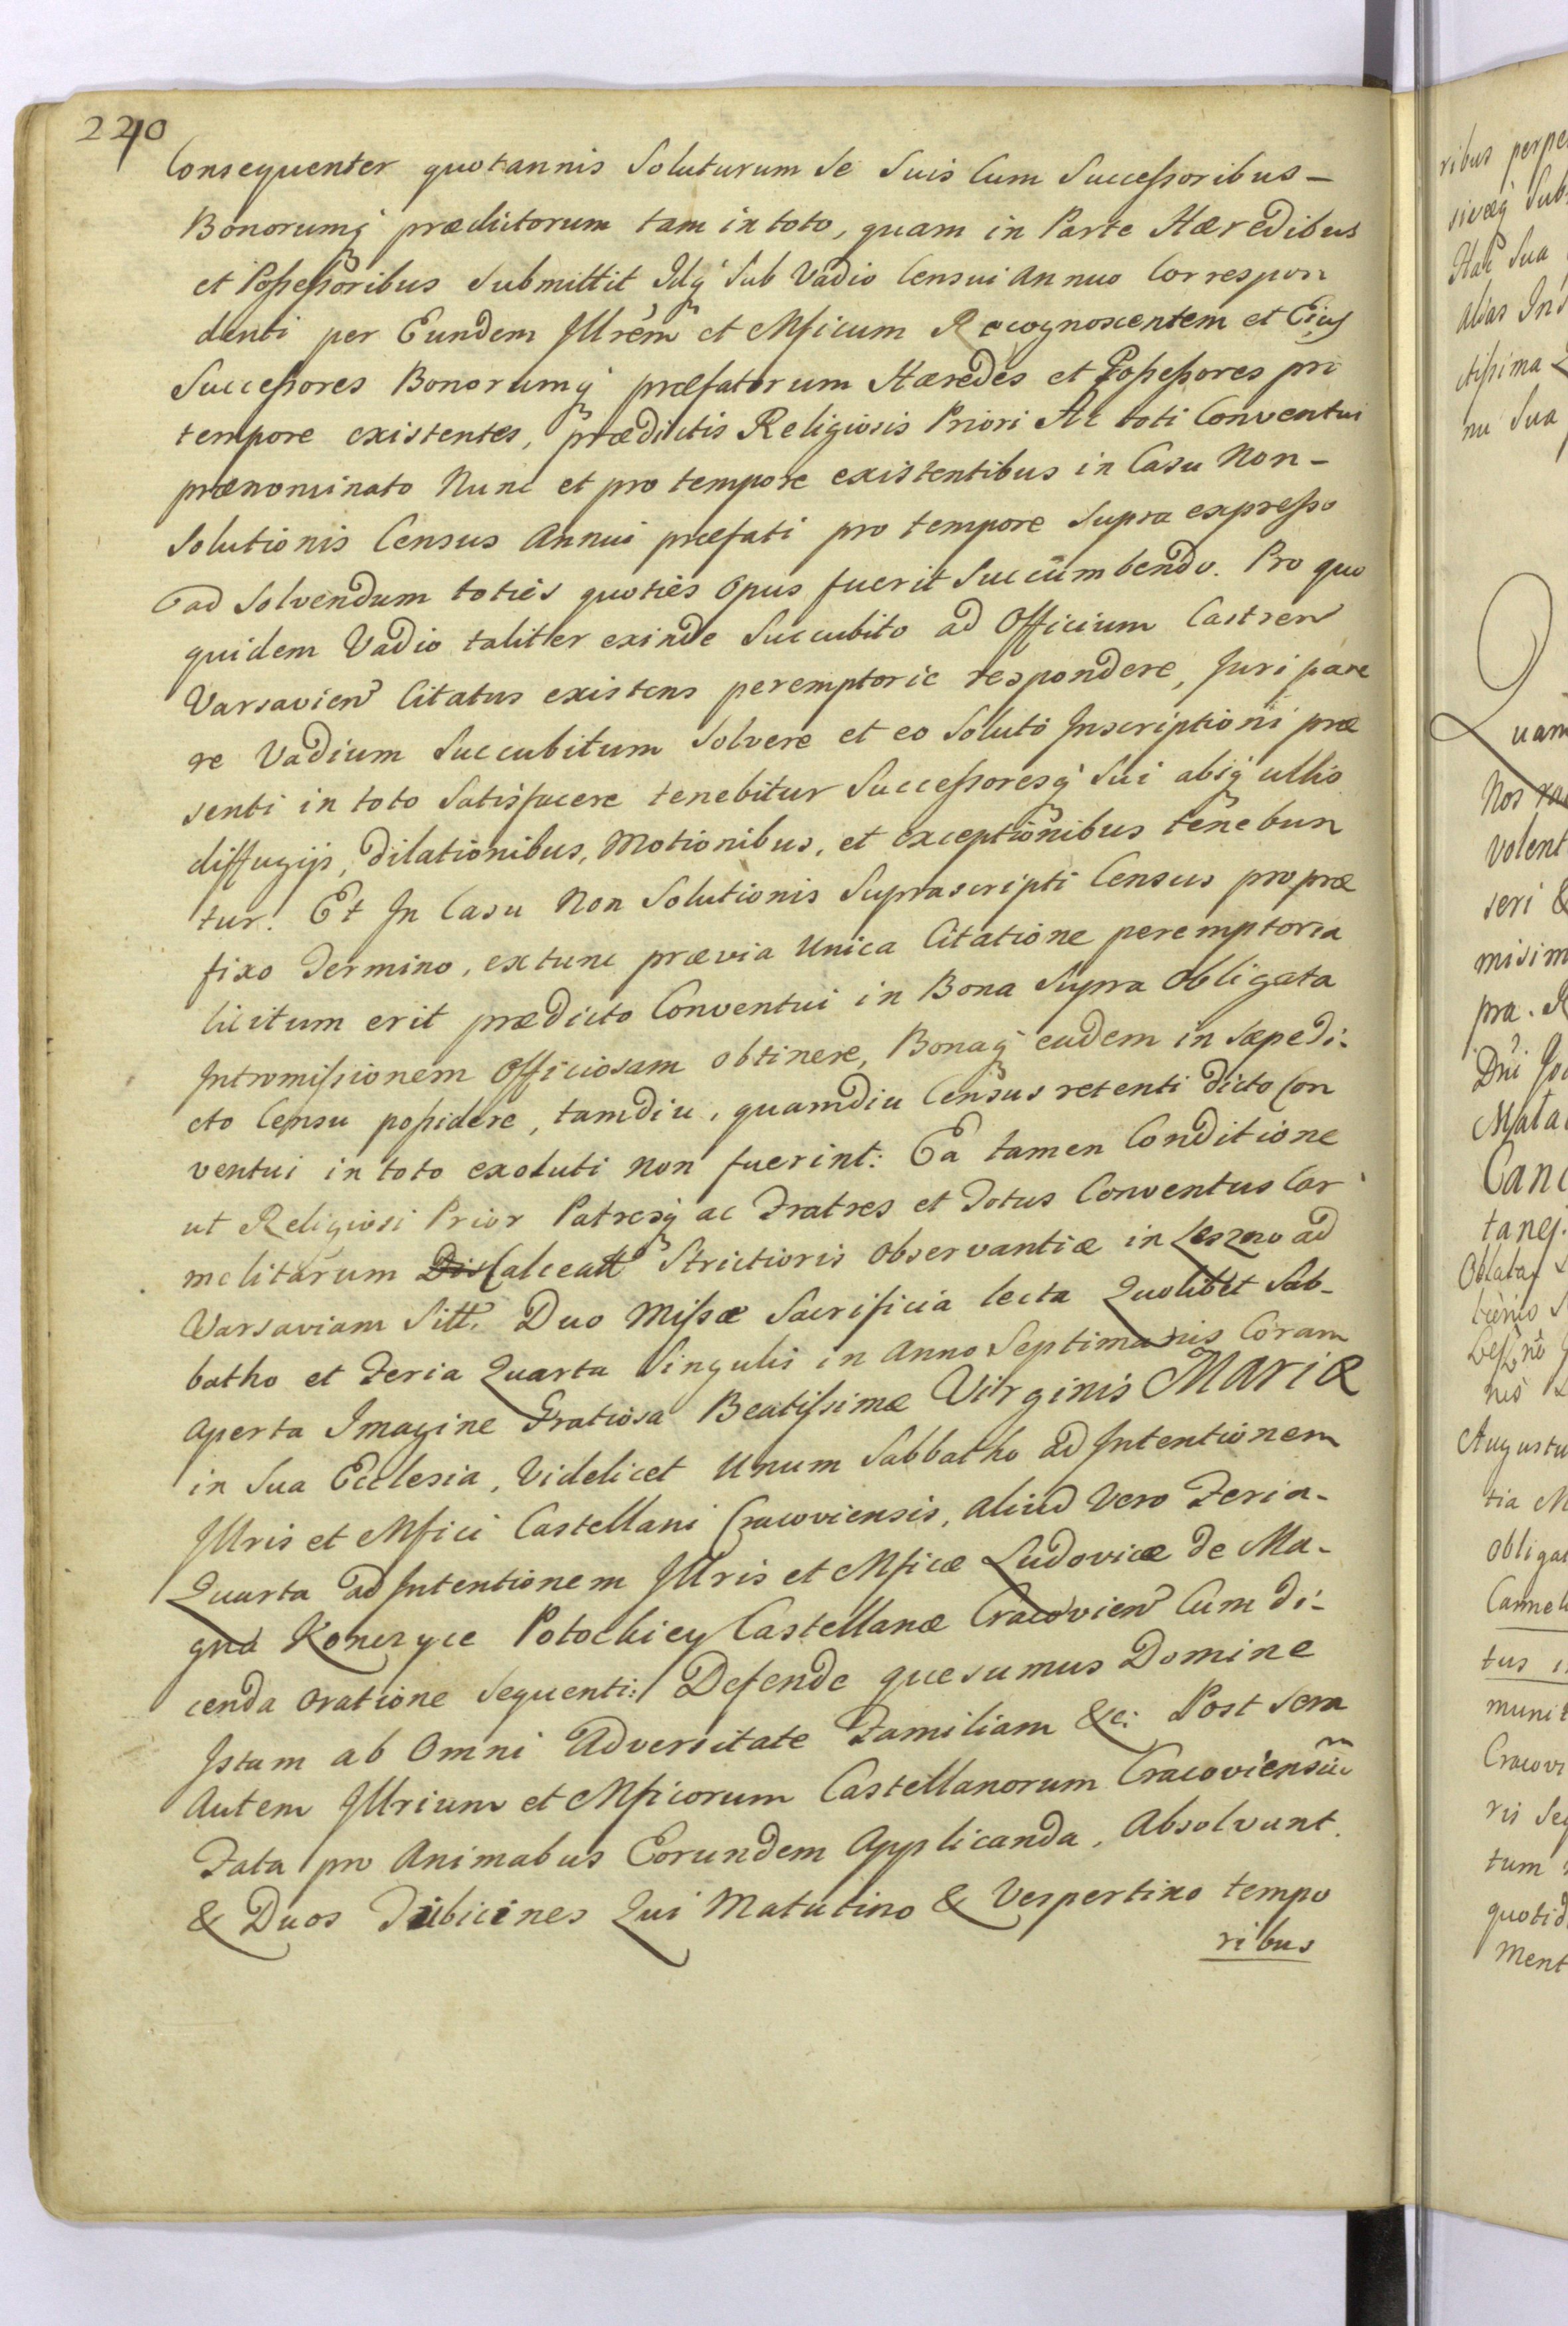 220
Consequenter quotannis Soluturum Se Suis Cum Successoribus –
Bonorumq́ prædictorum tam in toto, quam in Parte Hæredibus
et Possessoribus Submittit Idq́ Sub Vadio Censui Annuo Correspon
denti per Eundem Illrem et Mficum Recognoscentem et Eius
Successores Bonorumq́ præfatorum Hæredes et Possessores pri
tempore existentes, prædictis Religiosis Priori Ac toti Conventui
prænominato Nunc et pro tempore existentibus in Casu Non –
Solutionis Census Annui præfati pro tempore Supra expresso
ad Solvendum toties quoties Opus fuerit Succumbendo. Pro quo
quidem Vadio taliter exinde Succubito ad Officium Castren
Varsavien Citatus existens peremptorie respondere, Juri pare
re Vadium Succubitum Solvere et eo Soluto Inscriptioni præ
senti in toto Satisfacere tenebitur Successoresq́ Sui absq́ ullis
diffugijs, dilationibus, Motionibus, et exceptionibus tenebun
tur. Et In Casu Non Solutionis Suprascripti Census pro præ
fixo Termino, extunc prævia Unica Citatione peremptoria
licitum erit prædicto Conventui in Bona Supra Obligata
Intromissionem Officiosam obtinere, Bonaq́ eadem in Sæpedi-
cto Censu possidere, tamdiu, quamdiu Census retenti dicto Con
ventui in toto exoluti non fuerint: Ea tamen Conditione
ut Religiosi Prior Patresq́ ac Fratres et Totus Conventus Car
melitarum Dis Calceatt Strictioris Observantiæ in Leszno ad
Varsaviam Sitt. Duo Missæ Sacrificia lecta Quolibet Sab-
batho et Feria Quarta Singulis in Anno Septimanis Coram
Aperta Imagine Gratiosa Beatissimæ Virginis MARIÆ
in Sua Ecclesia, Videlicet Unum Sabbatho ad Intentionem
Illris et Mfici Castellani Cracoviensis, aliud Vero Feria –
Quarta ad Intentionem Illris et Mficæ Ludovicæ de Ma-
gna Koneryce Potockiey Castellanæ Cracovien Cum di-
cenda Oratione Sequenti: Defende quesumus Domine
Istam ab Omni Adversitate Familiam &c: Post Sera
Autem Illrium et Mficorum Castellanorum Cracoviensiũ
Fata pro Animabus Eorundem Applicanda, Absolvunt.
& Duos Tubicines Qui Matutino & Vespertino tempo
ribus